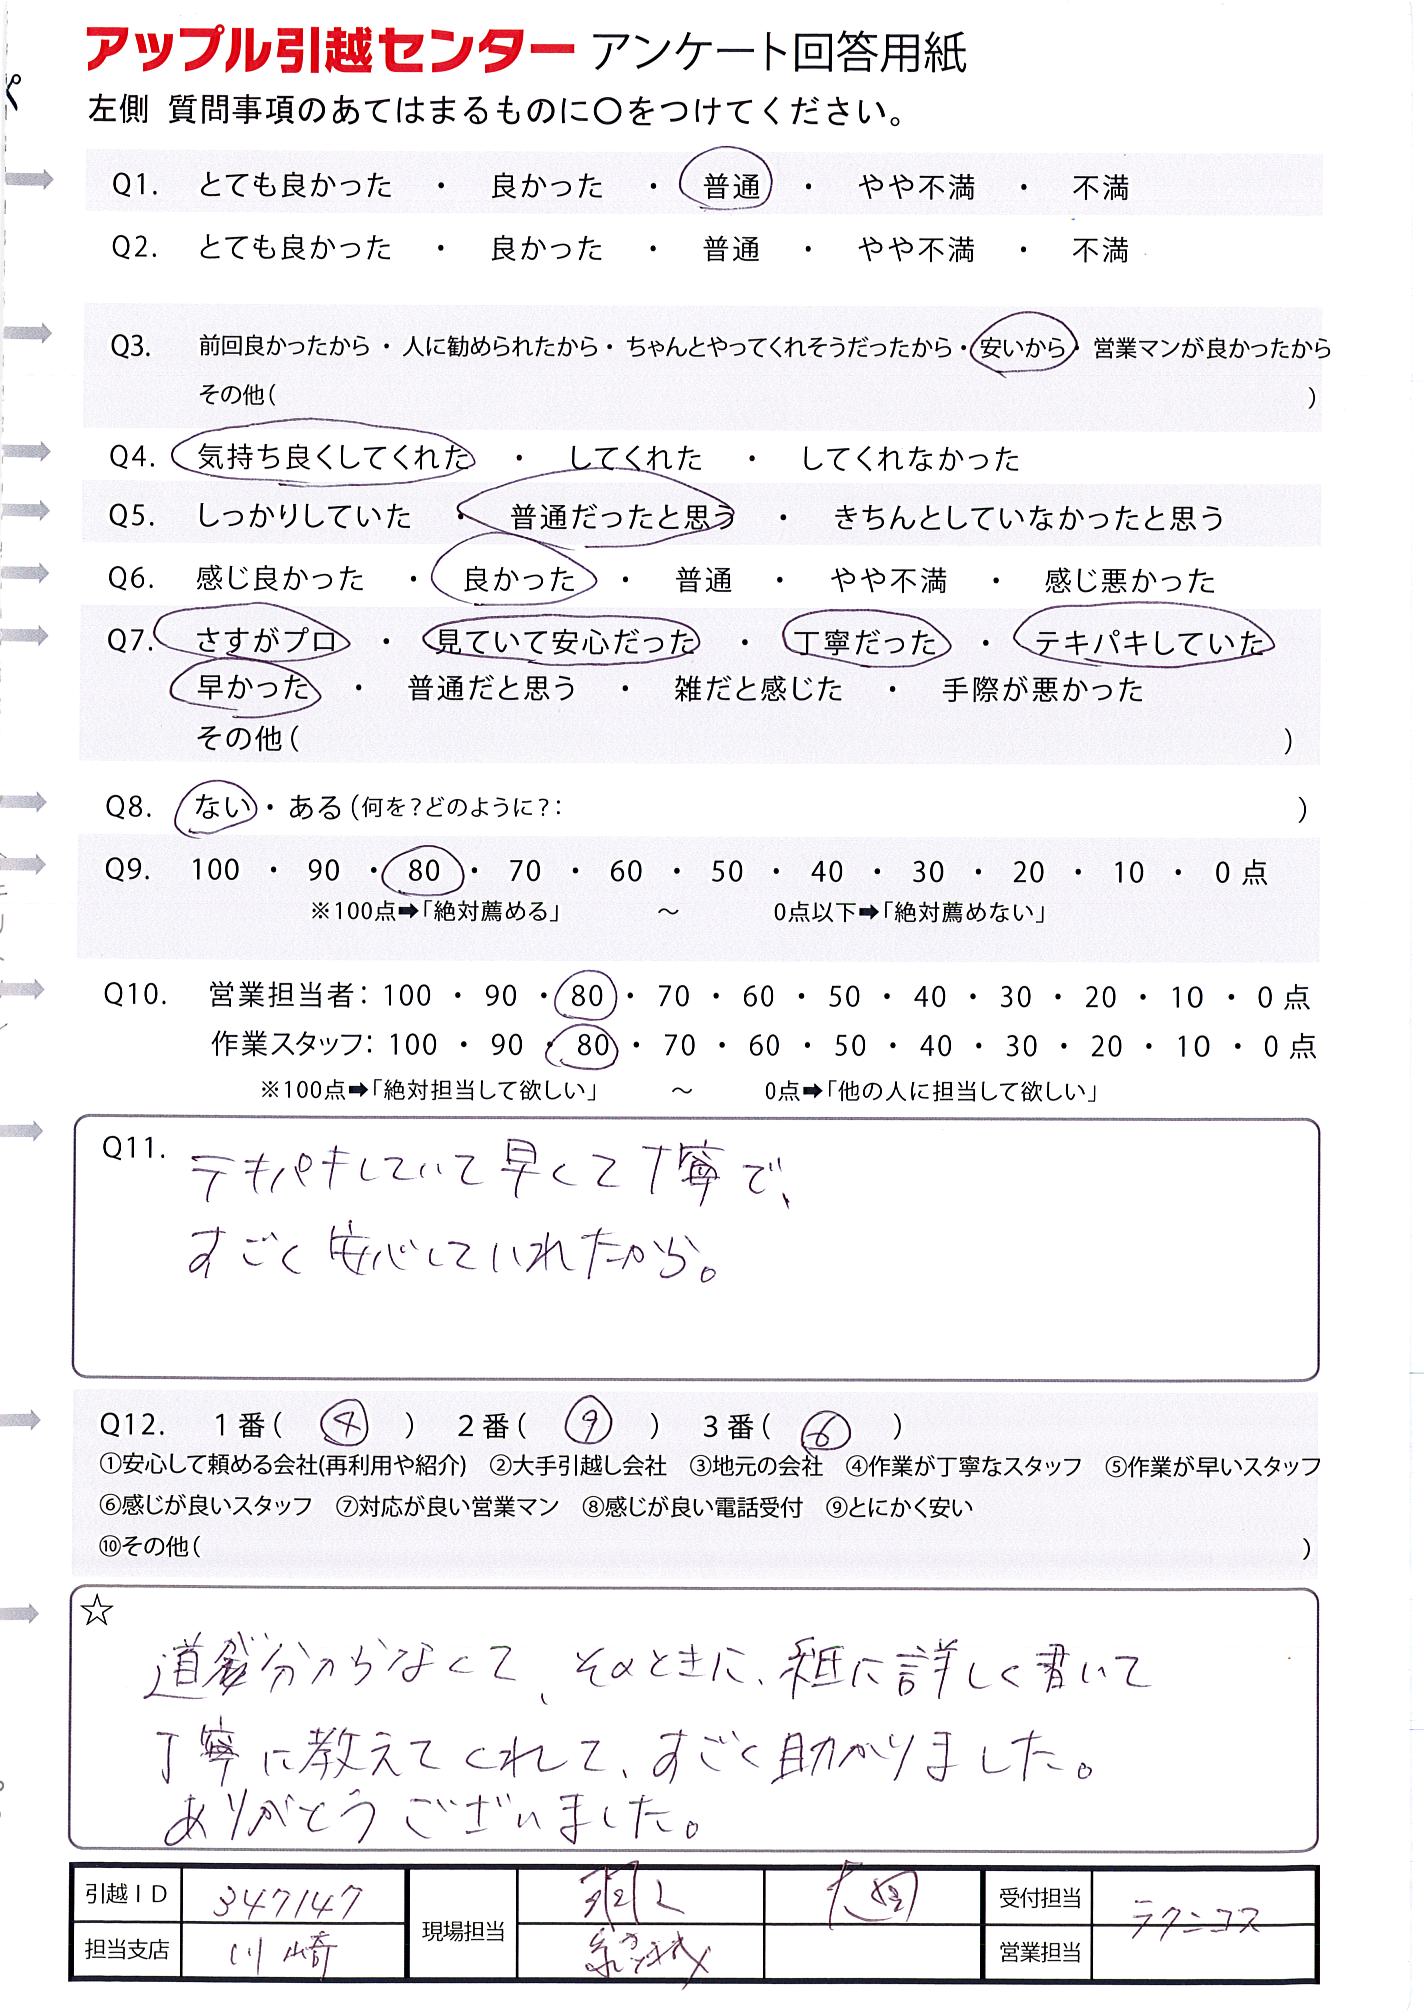 アップル引越センター アンケート回答用紙
左側 質問事項のあてはまるものに○をつけてください。
Q1. とても良かった ・ 良かった ・ 普通 ・ やや不満 ・ 不満
Q2. とても良かった ・ 良かった ・ 普通 ・ やや不満 ・ 不満
Q3. 前回良かったから・人に勧められたから・ちゃんとやってくれそうだったから・安いから・営業マンが良かったから
その他( )
Q4. 気持ち良くしてくれた ・ してくれた ・ してくれなかった
Q5. しっかりしていた ・ 普通だったと思う ・ きちんとしていなかったと思う
Q6. 感じ良かった ・ 良かった ・ 普通 ・ やや不満 ・ 感じ悪かった
Q7. さすがプロ ・ 見ていて安心だった ・ 丁寧だった ・ テキパキしていた
早かった ・ 普通だと思う ・ 雑だと感じた ・ 手際が悪かった
その他( )
Q8. ない・ある(何を?どのように?: )
Q9. 100 ・ 90 ・ 80 ・ 70 ・ 60 ・ 50 ・ 40 ・ 30 ・ 20 ・ 10 ・ 0点
※100点➡「絶対薦める」 ~ 0点以下➡「絶対薦めない」
Q10. 営業担当者: 100 ・ 90 ・ 80 ・ 70 ・ 60 ・ 50 ・ 40 ・ 30 ・ 20 ・ 10 ・ 0点
作業スタッフ: 100 ・ 90 ・ 80 ・ 70 ・ 60 ・ 50 ・ 40 ・ 30 ・ 20 ・ 10 ・ 0点
※100点➡「絶対担当して欲しい」 ~ 0点➡「他の人に担当して欲しい」
Q11. テキパキしていて早くて丁寧で、
すごく安心していれたから。
Q12. 1番( ④ ) 2番( ⑨ ) 3番( ⑥ )
①安心して頼める会社(再利用や紹介) ②大手引越し会社 ③地元の会社 ④作業が丁寧なスタッフ ⑤作業が早いスタッフ
⑥感じが良いスタッフ ⑦対応が良い営業マン ⑧感じが良い電話受付 ⑨とにかく安い
⑩その他( )
☆
道が分からなくて、そのときに、紙に詳しく書いて
丁寧に教えてくれて、すごく助かりました。
ありがとうございました。
引越ID 347147 現場担当 受付担当 ラクニコス
担当支店 川崎 営業担当